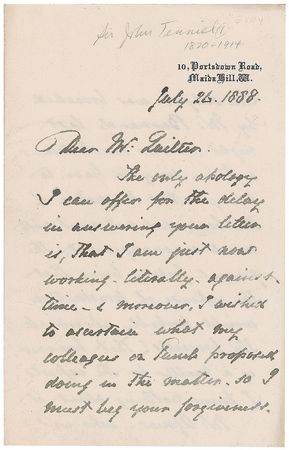 Sir John Tenniel
1820-1914
10, Portsdown Road,
Maida Hill, W.
July 26. 1888.
Dear Mr. Quilter,
The only apology
I can offer for the delay
in answering your letter
is, that I am just now
working - literally - against
time - & moreover, I wished
to ascertain what my
colleagues on Punch proposed
doing in the matter. so I
must beg your forgiveness.